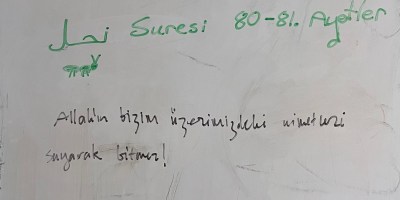 نحل Suresi 80-81. Ayetler
Allah'ın bizim üzerimizdeki nimetleri
sayarak bitmez!